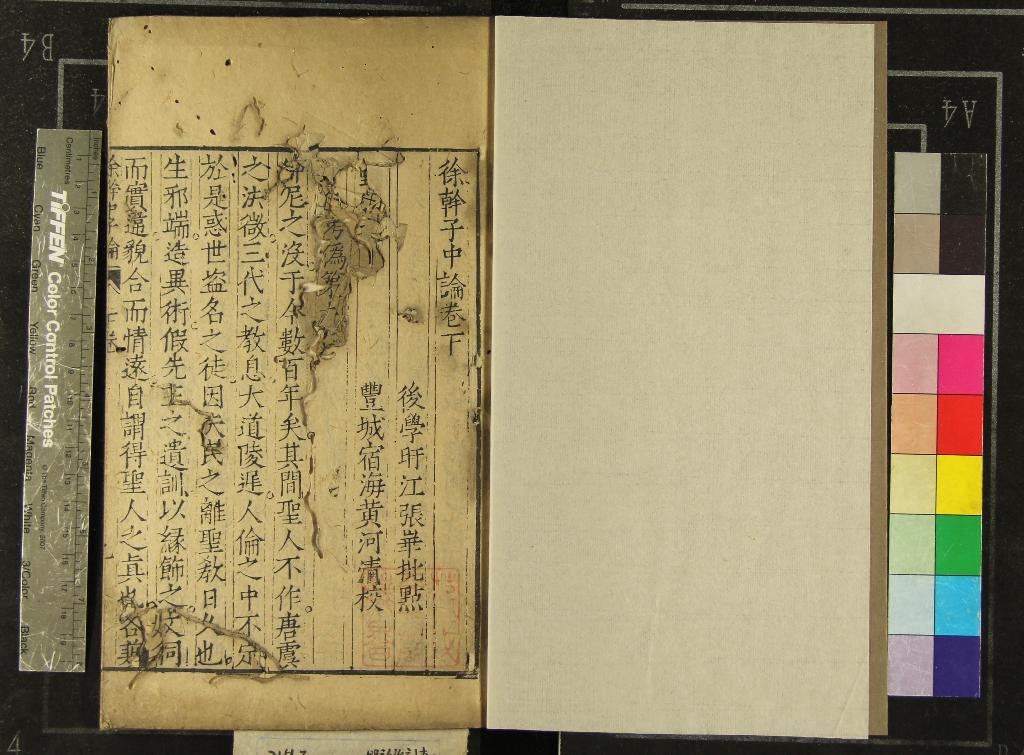 徐幹子中論卷下
後學盱江張畢批㸃
豐城宿海黄河清校
考爲第
仲尼之没于今數百年矣其間聖人不作唐虞
之法微三代之教息大道陵遲人倫之中不定
於是惑世盗名之徒因夫民之離聖教日久也
生邪端造異術假先王之遺訓以縁飾之文同
而實違貌合而情遠自謂得聖人之真也各兼
B4
A4
4
TIFFEN Color Control Patches
© The Tiffen Company, 2007
Centimetres
Inches
Blue
Cyan
Green
Yellow
Red
Magenta
White
3/Color
Black